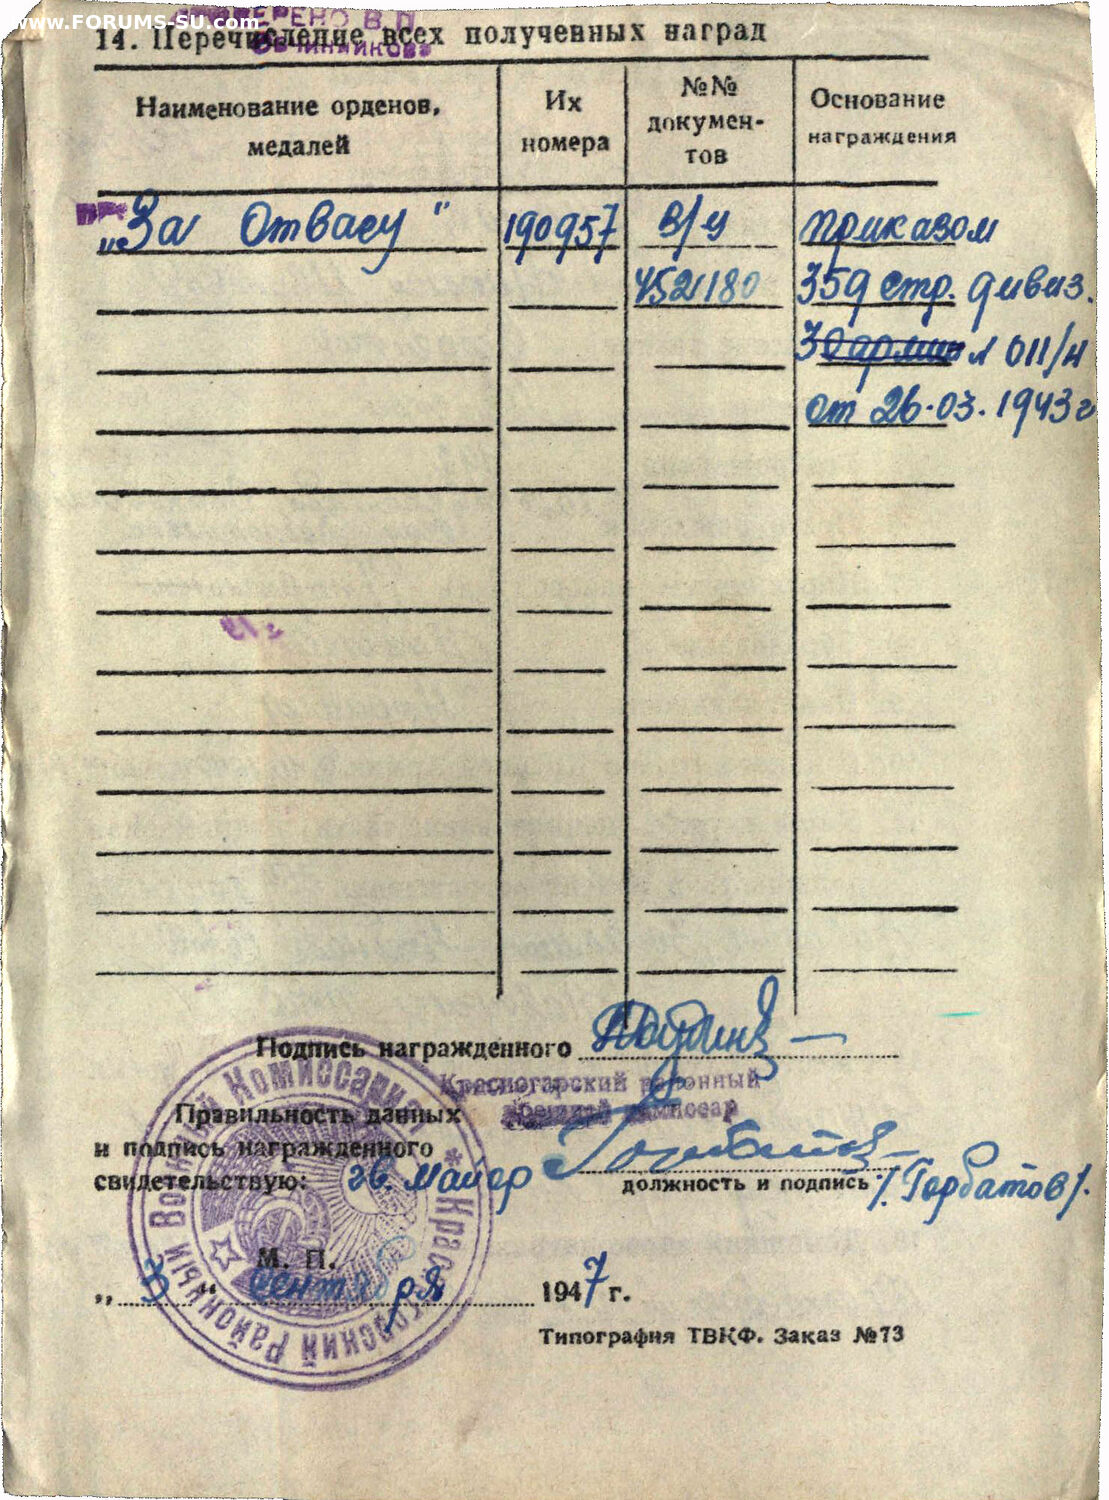 www.FORUMS-SU.com
ПРОВЕРЕНО В.П.
Овчинникова
14. Перечисление всех полученных наград
Наименование орденов, медалей
Их номера
№№ документов
Основание награждения
„За Отвагу"
190957
в/у
452180
приказом
359 стр. дивиз.
30 армии № 011/н
от 26.03.1943 г
Подпись награжденного
Красногорский районный
военный комиссар
Правильность данных
и подпись награжденного
свидетельствую: гв. майор
должность и подпись /Горбатов/.
М. П.
„ 3 " сентября 1947 г.
Типография ТВКФ. Заказ №73
Красногорский Районный Военный Комиссариат